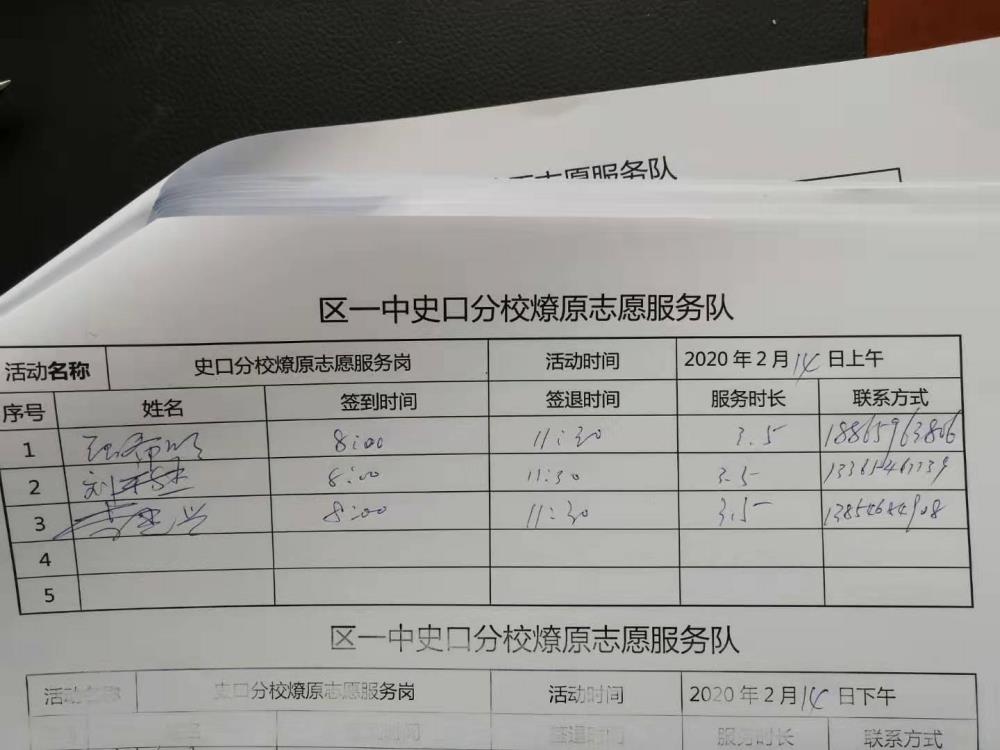 愿服务队
区一中史口分校燎原志愿服务队
活动名称 史口分校燎原志愿服务岗 活动时间 2020年2月14日上午
序号 姓名 签到时间 签退时间 服务时长 联系方式
1 8:00 11:30 3.5 18865963806
2 刘 8:00 11:30 3.5
3 8:00 11:30 3.5 13854684908
4
5
区一中史口分校燎原志愿服务队
活动名称 史口分校燎原志愿服务岗 活动时间 2020年2月14日下午
姓名 签到时间 签退时间 服务时长 联系方式